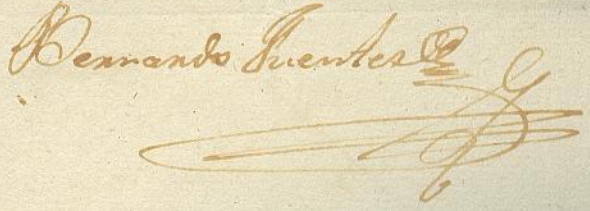 Bernardo Fuentes